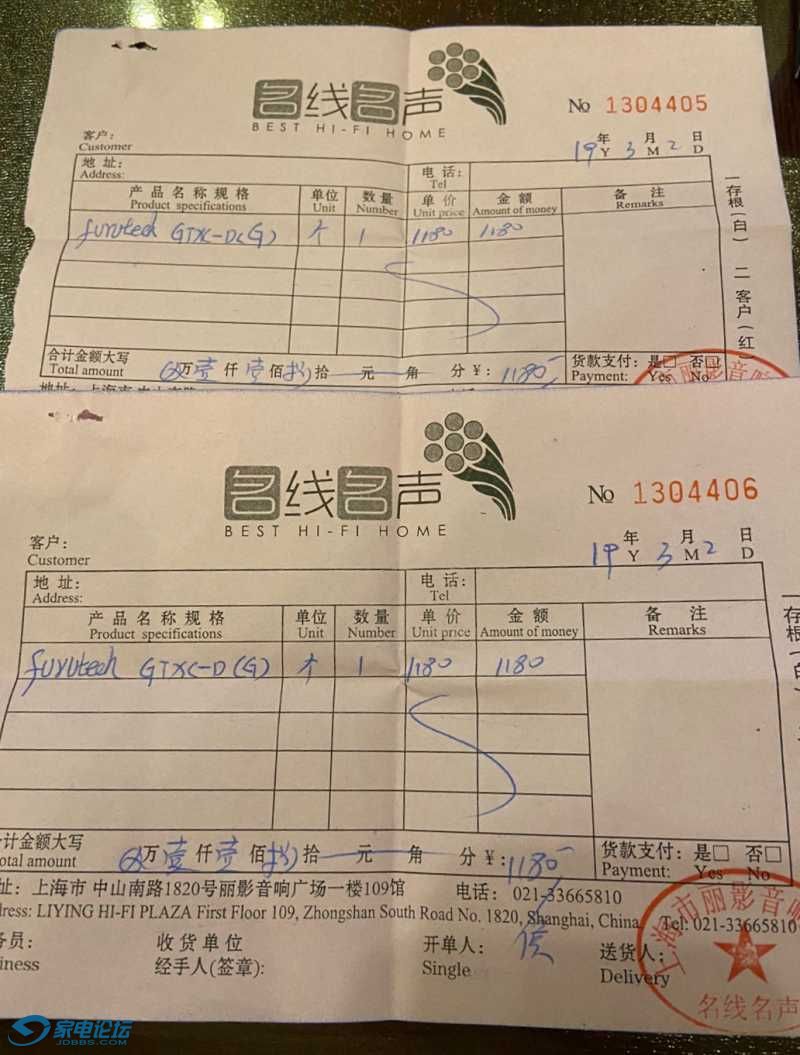 名线名声
BEST HI-FI HOME
No 1304405
客户:
Customer
19 年 3 月 2 日
Y M D
地址:
Address:
电话:
Tel
产品名称规格 单位 数量 单价 金额 备注
Product specifications Unit Number Unit price Amount of money Remarks
furutech GTX-D(G) 个 1 1180 1180
合计金额大写 万壹仟壹佰捌拾 元 角 分 ¥: 1180
Total amount
货款支付: 是□ 否□
Payment: Yes No
一存根(白) 二客户(红)
丽影音响
名线名声
BEST HI-FI HOME
No 1304406
客户:
Customer
19 年 3 月 2 日
Y M D
地址:
Address:
电话:
Tel
产品名称规格 单位 数量 单价 金额 备注
Product specifications Unit Number Unit price Amount of money Remarks
furutech GTX-D(G) 个 1 1180 1180
一存根(白)
计金额大写 万壹仟壹佰捌拾 元 角 分 ¥: 1180
otal amount
货款支付: 是□ 否□
Payment: Yes No
址: 上海市中山南路1820号丽影音响广场一楼109馆 电话: 021-33665810
ress: LIYING HI-FI PLAZA First Floor 109, Zhongshan South Road No. 1820, Shanghai, China Tel: 021-33665810
务员: 收货单位 开单人: 侯 送货人:
iness 经手人(签章): Single Delivery
上海市丽影音响
名线名声
家电论坛
JDBBS.COM